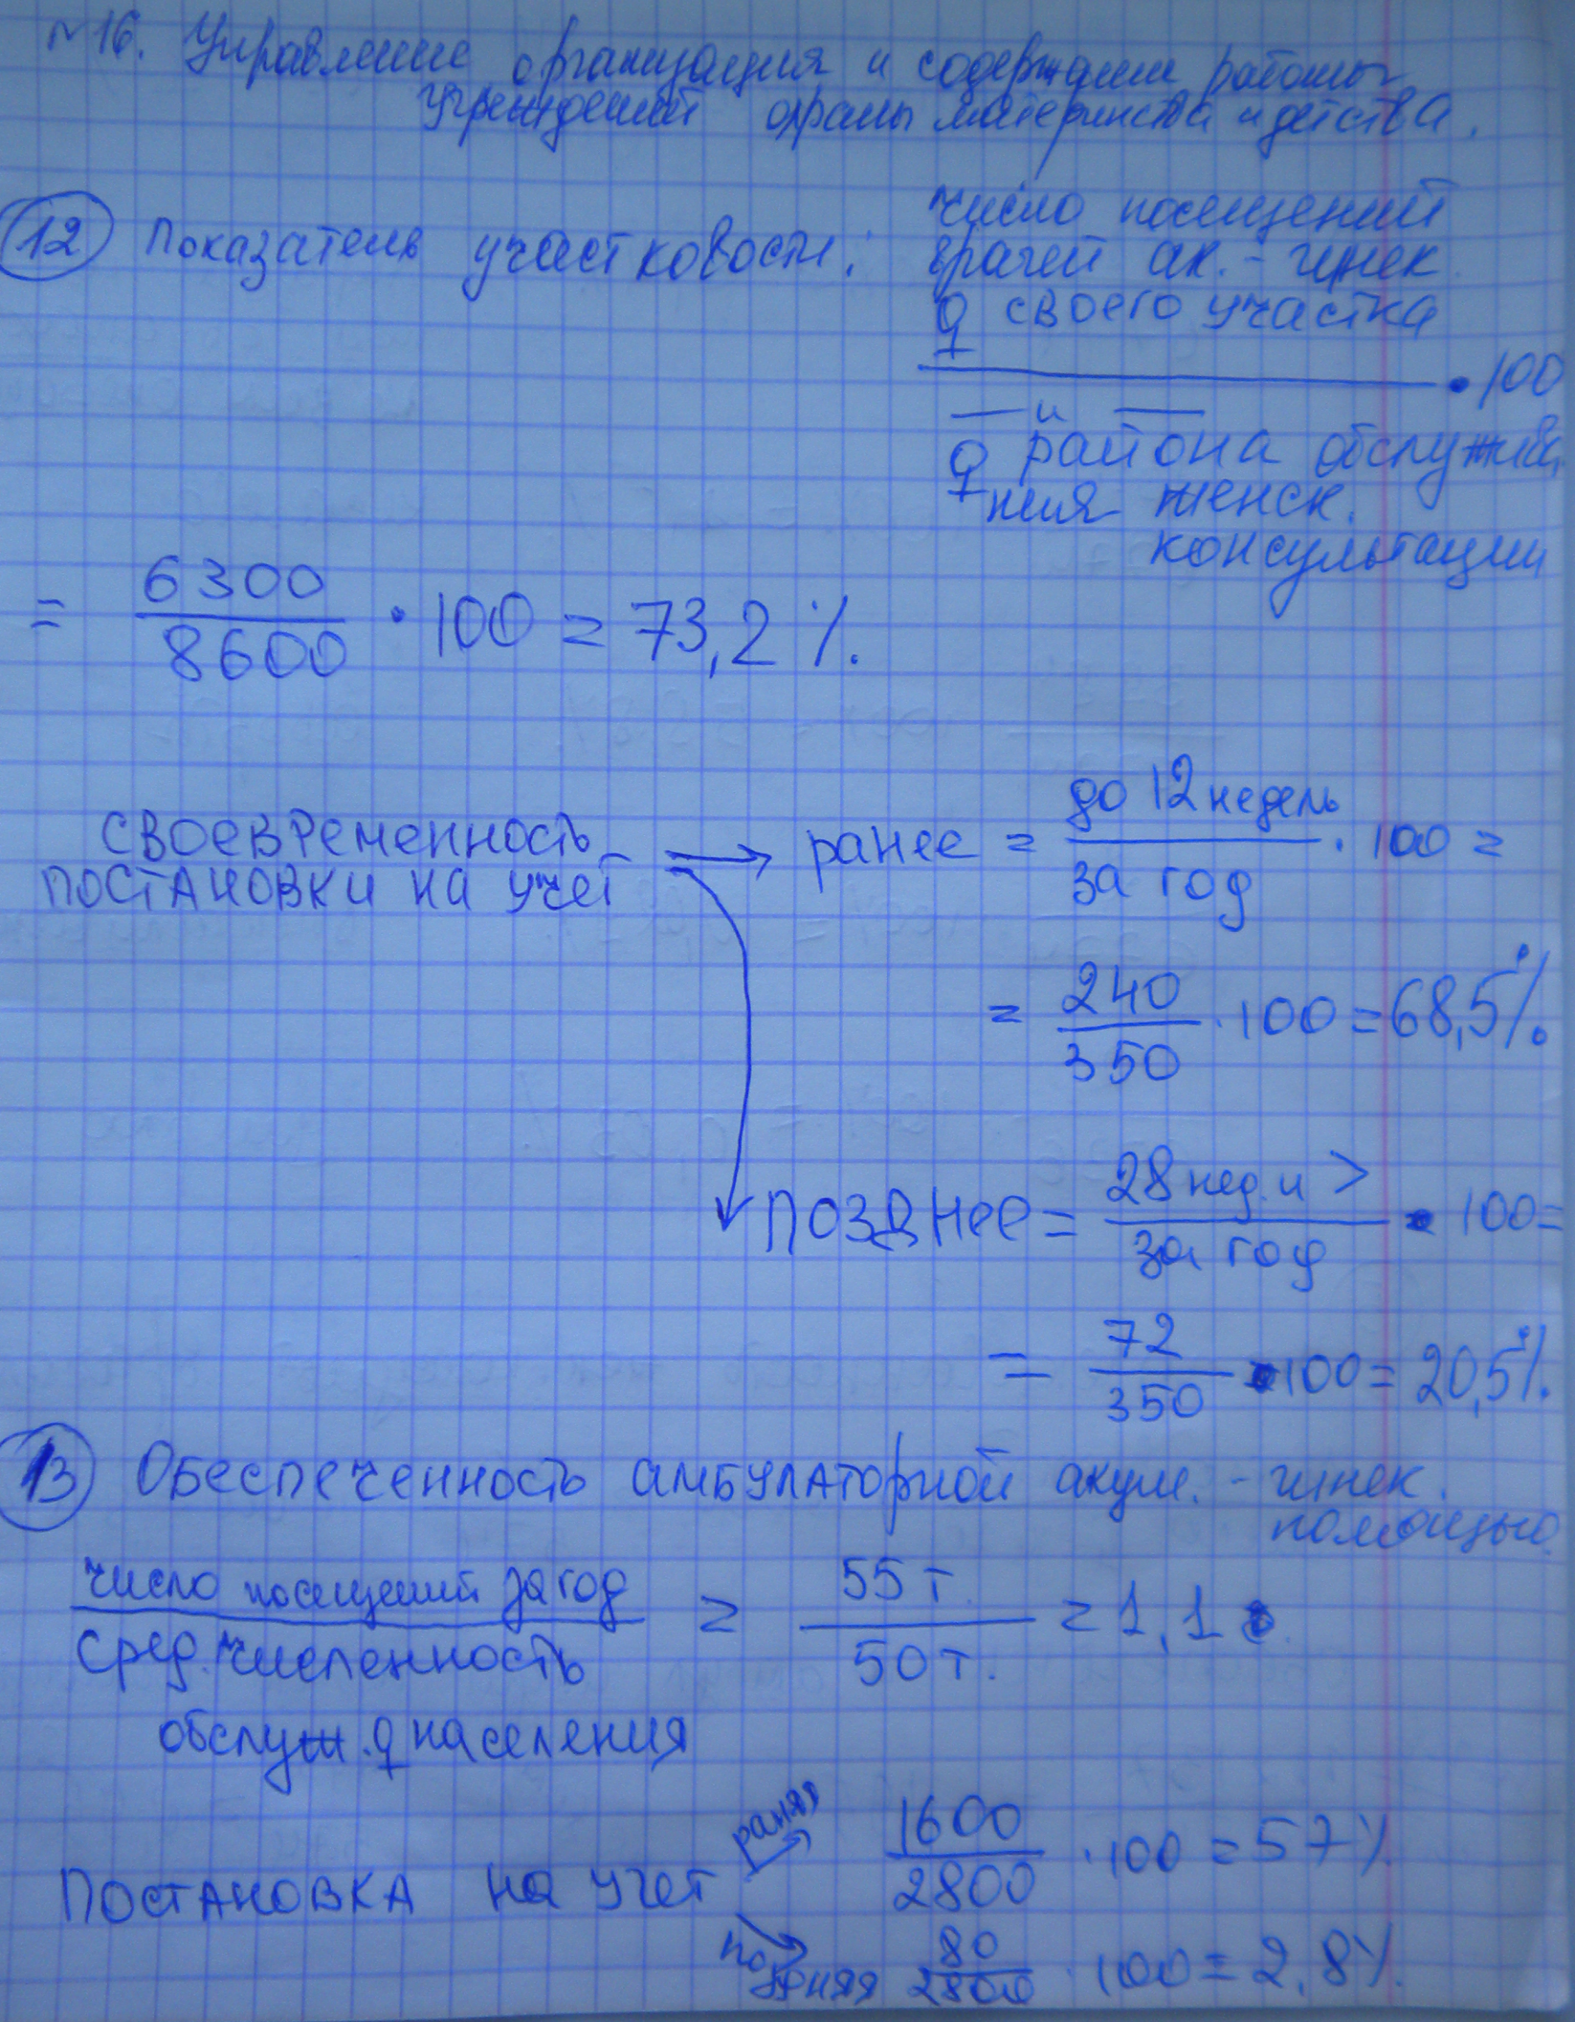 №16. Управление организация и содержание работы
учреждений охраны материнства и детства.
12 Показатель участковости:
число посещений
врачей ак.-гинек
♀ своего участка
• 100
— и —
♀ района обслужива
ния женск.
консультации
= 6300 / 8600 · 100 = 73,2 %.
СВОЕВРЕМЕННОСТЬ
ПОСТАНОВКИ НА УЧЕТ
→ ранее = до 12 недель / за год · 100 =
= 240 / 350 · 100 = 68,5 %
ПОЗДНЕЕ = 28 нед. и > / за год • 100 =
= 72 / 350 • 100 = 20,5 %.
13 Обеспеченность амбулаторной акуш.-гинек.
помощью
число посещений за год / сред. численность = 55 т. / 50 т. = 1,1
обслуж. ♀ населения
Постановка на учет
ранняя 1600 / 2800 · 100 = 57 %
поздняя 80 / 2800 · 100 = 2.8 %.